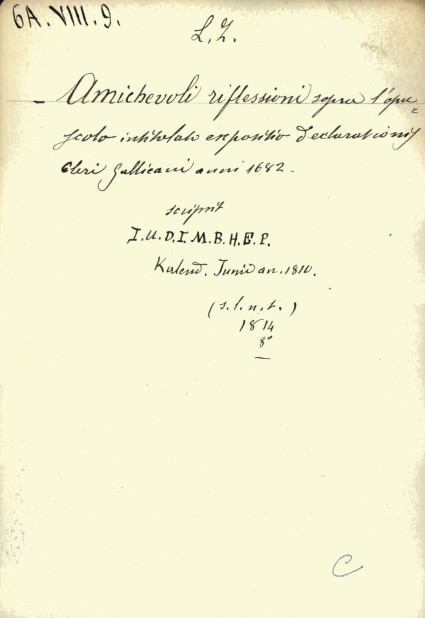 6A. VIII. 9.
L. Z.
– Amichevoli riflessioni sopra l'opu=
scolo intitolato expositio declarationis
Cleri gallicani anni 1682.
scripsit
I. U. D. I. M. B. H. E. P.
Kalend. Junii an. 1810.
(s. l. n. t.)
1814
8°
C